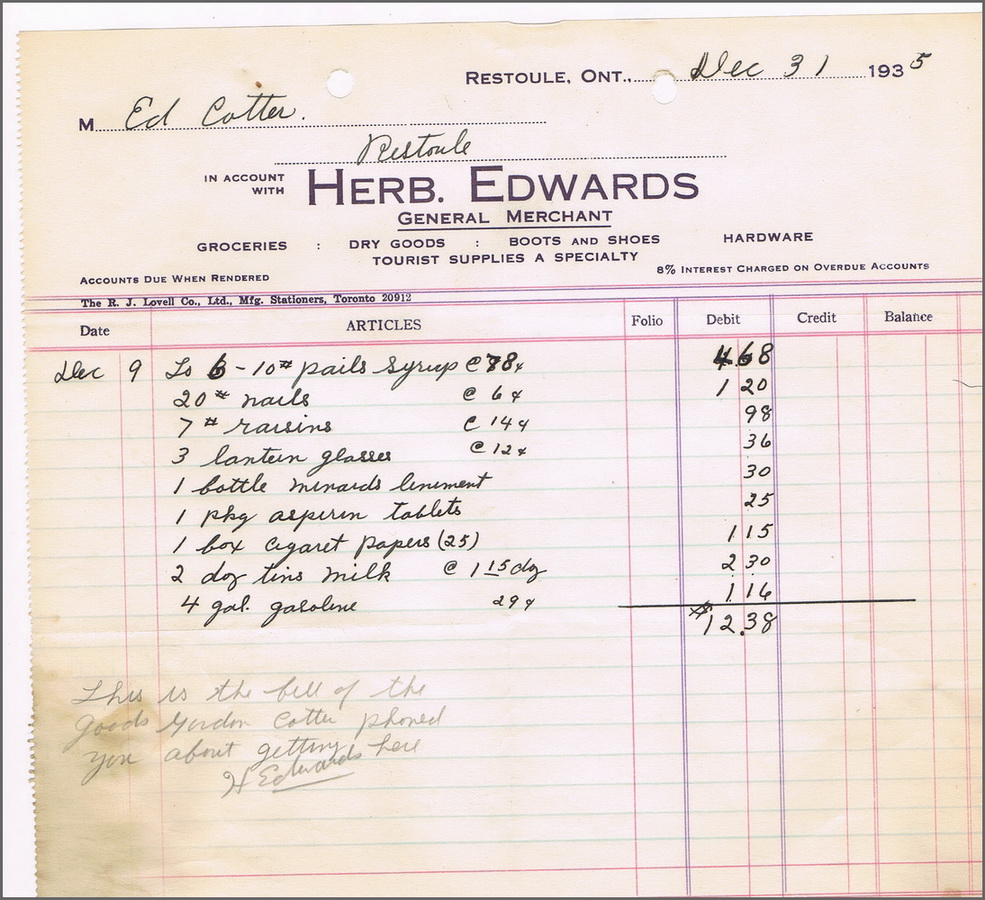 RESTOULE, ONT., Dec 31 1935
M Ed Cotter.
Restoule
IN ACCOUNT WITH HERB. EDWARDS
GENERAL MERCHANT
GROCERIES : DRY GOODS : BOOTS AND SHOES HARDWARE
TOURIST SUPPLIES A SPECIALTY
ACCOUNTS DUE WHEN RENDERED 8% INTEREST CHARGED ON OVERDUE ACCOUNTS
The R. J. Lovell Co., Ltd., Mfg. Stationers, Toronto 20912
Date ARTICLES Folio Debit Credit Balance
Dec 9 To 6 - 10# pails syrup @ 78¢ 4.68
20# nails @ 6¢ 1 20
7# raisins @ 14¢ 98
3 lantern glasses @ 12¢ 36
1 bottle minards liniment 30
1 pkg aspirin tablets 25
1 box cigaret papers (25) 1 15
2 doz tins milk @ 1 15 doz 2 30
4 gal. gasoline 29¢ 1.16
$12.38
This is the bill of the
goods Gordon Cotter phoned
you about getting here
H Edwards